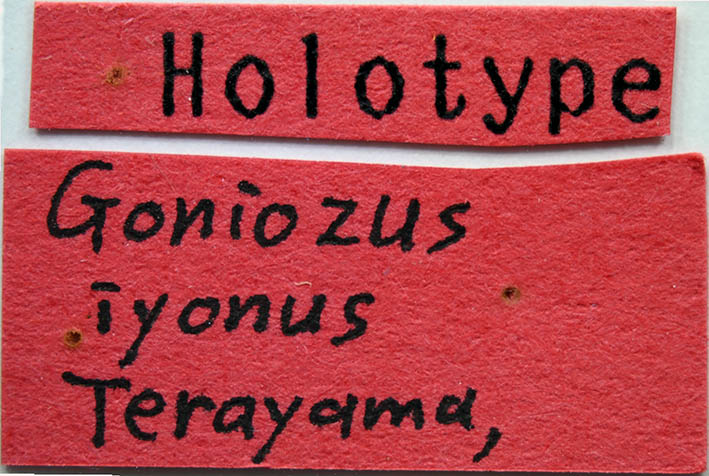 Holotype
Goniozus
iyonus
Terayama,